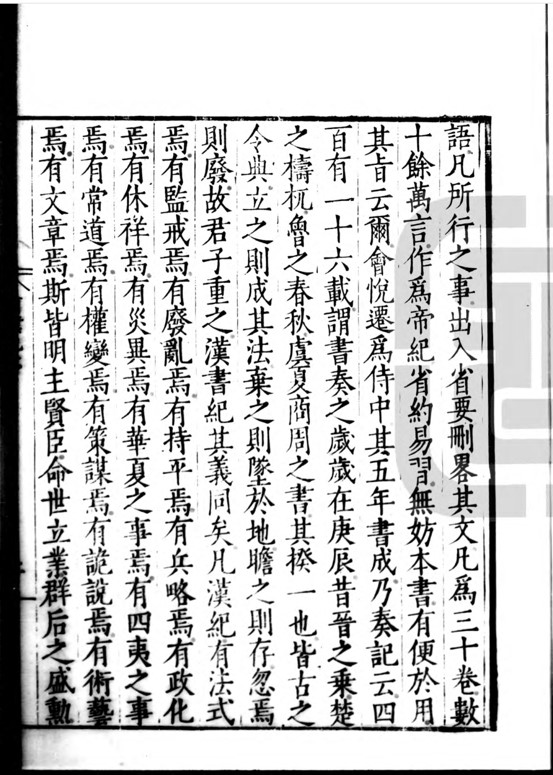 語凡所行之事出入省要刪畧其文凡爲三十卷數
十餘萬言作爲帝紀省約易習無妨本書有便於用
其旨云爾會恱遷爲侍中其五年書成乃奏記云四
百有一十六載謂書奏之歲歲在庚辰昔晉之乗楚
之檮杌魯之春秋虞夏商周之書其揆一也皆古之
令典立之則成其法棄之則墜於地瞻之則存忽焉
則廢故君子重之漢書紀其義同矣凡漢紀有法式
焉有監戒焉有廢亂焉有持平焉有兵略焉有政化
焉有休祥焉有災異焉有華夏之事焉有四夷之事
焉有常道焉有權變焉有策謀焉有詭說焉有術藝
焉有文章焉斯皆明主賢臣命世立業群后之盛勲